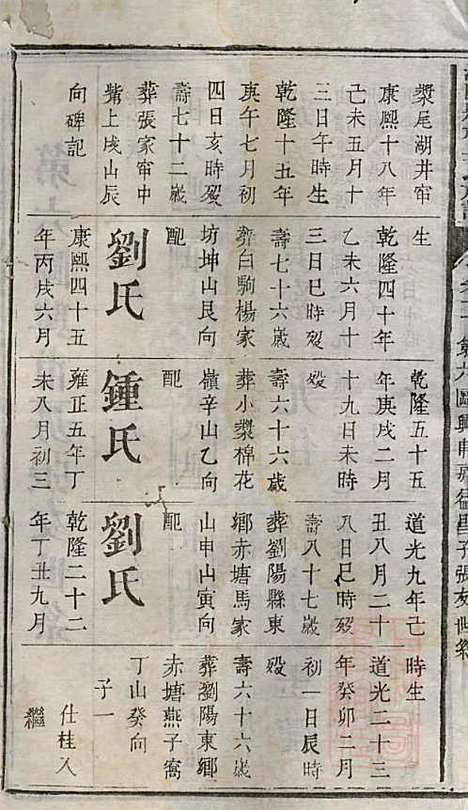 槳尾湖井窜
康熙十八年
己未五月十
三日午時生
乾隆十五年
庚午七月初
四日亥時歿
壽七十二歲
葬張家窜中
嘴上戌山辰
向碑記
生
乾隆四十年
乙未六月十
三日巳時歿
壽七十六歲
葬白駒楊家
坊坤山艮向
配
劉氏
康熙四十五
年丙戌六月
乾隆五十五
年庚戌二月
十九日未時
歿
壽六十六歲
葬小槳棉花
嶺辛山乙向
配
鍾氏
雍正五年丁
未八月初三
道光九年己
丑八月二十
八日巳時歿
壽八十七歲
葬劉陽縣東
鄉赤塘馬家
山申山寅向
配
劉氏
乾隆二十二
年丁丑九月
時生
道光二十三
年癸卯二月
初一日辰時
歿
壽六十六歲
葬劉陽東鄉
赤塘燕子窩
丁山癸向
子一
仕桂入
繼